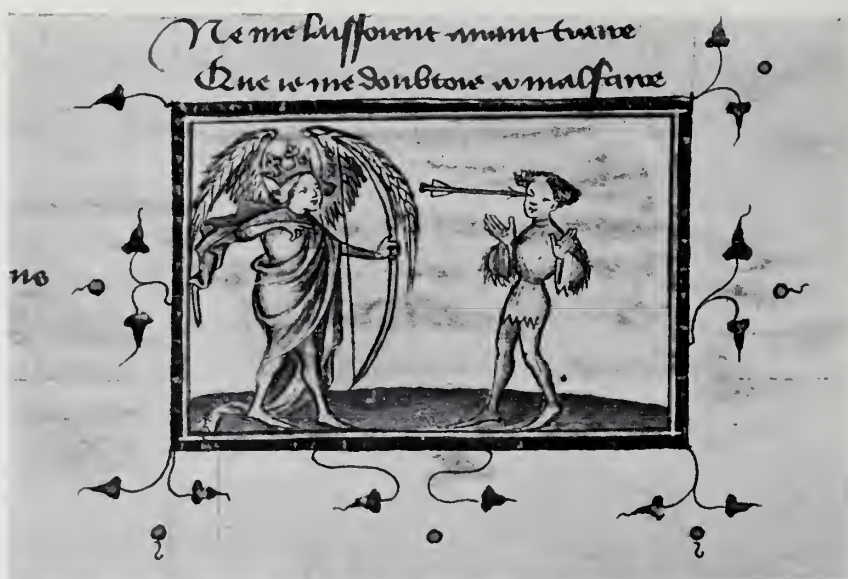 Ne me laissoient avant traire
Que ie me doubtoie a malfaire
ns